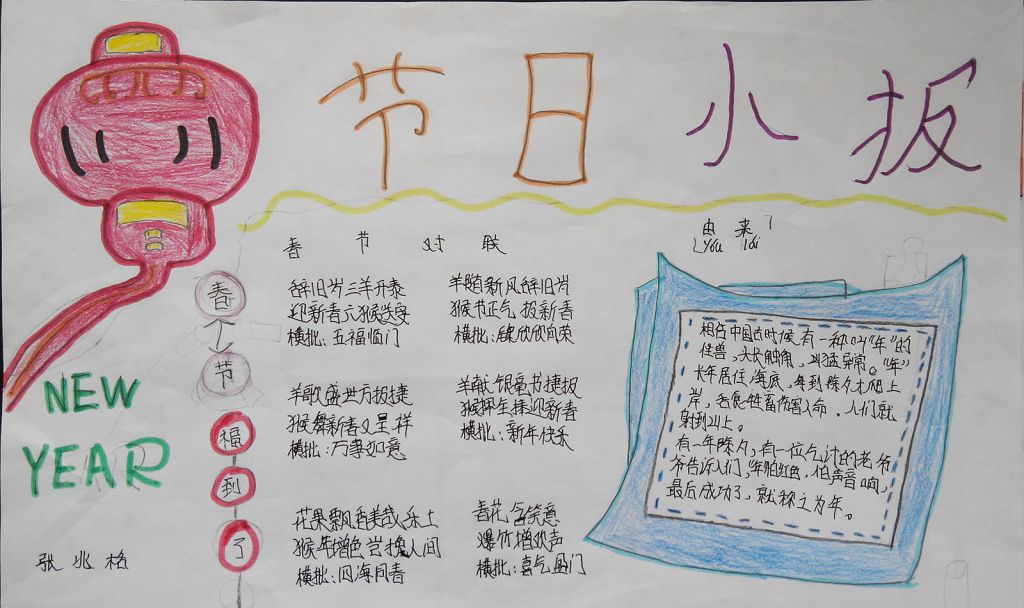 节日小报
NEW
YEAR
春
节
福
到
了
张兆格
春节对联
辞旧岁三羊开泰
迎新春六猴送安
横批:五福临门
羊随新风辞旧岁
猴节正气报新春
横批:欣欣向荣
羊歌盛世方报捷
猴舞新春又呈祥
横批:万事如意
羊献银毫书捷报
猴挥生棒迎新春
横批:新年快乐
花果飘香美哉乐土
猴年增色岂搀人间
横批:四海同春
春花含笑意
爆竹增欢声
横批:喜气盈门
由来
yóu lái
相传中国古时候有一种叫"年"的
怪兽,大长触角,凶猛异常。"年"
长年居住海底,每到除夕才爬上
岸,吞食牲畜伤害人命。人们就
躲到山上。
有一年除夕,有一位乞讨的老爷
爷告诉人们,年怕红色,怕声音响,
最后成功了,就称之为年。